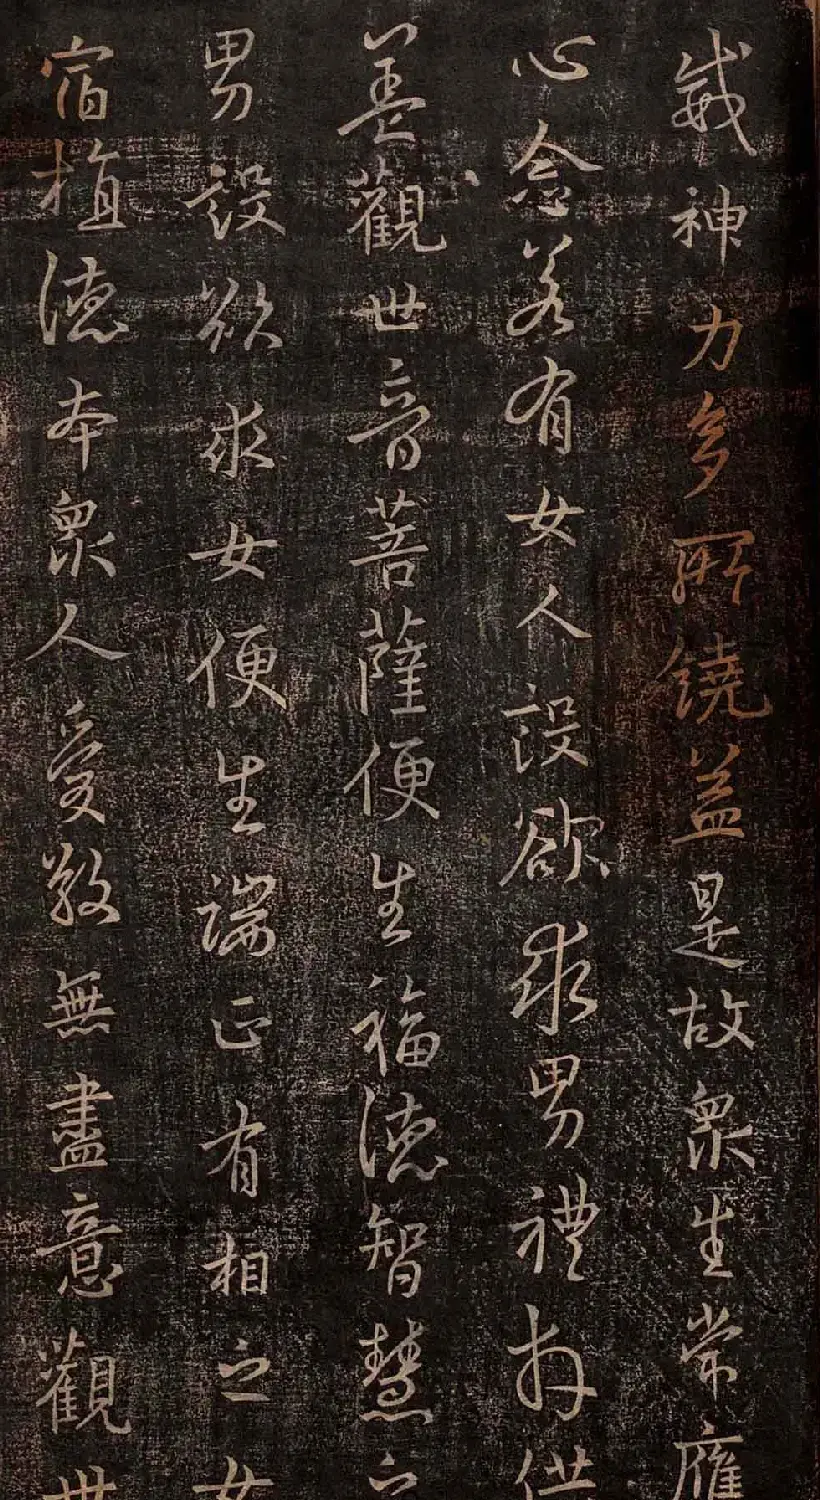 威神力多所饒益是故眾生常應
心念若有女人設欲求男禮拜供
養觀世音菩薩便生福德智慧之
男設欲求女便生端正有相之女
宿植德本眾人愛敬無盡意觀世